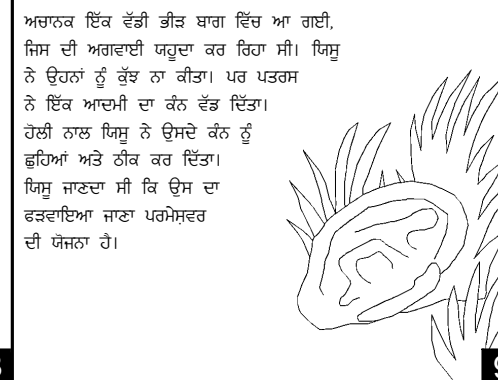 ਅਚਾਨਕ ਇੱਕ ਵੱਡੀ ਭੀੜ ਬਾਗ ਵਿੱਚ ਆ ਗਈ,
ਜਿਸ ਦੀ ਅਗਵਾਈ ਯਹੂਦਾ ਕਰ ਰਿਹਾ ਸੀ। ਯਿਸੂ
ਨੇ ਉਹਨਾਂ ਨੂੰ ਕੁੱਝ ਨਾ ਕੀਤਾ। ਪਰ ਪਤਰਸ
ਨੇ ਇੱਕ ਆਦਮੀ ਦਾ ਕੰਨ ਵੱਡ ਦਿੱਤਾ।
ਹੋਲੀ ਨਾਲ ਯਿਸੂ ਨੇ ਉਸਦੇ ਕੰਨ ਨੂੰ
ਛੁਹਿਆਂ ਅਤੇ ਠੀਕ ਕਰ ਦਿੱਤਾ।
ਯਿਸੂ ਜਾਣਦਾ ਸੀ ਕਿ ਉਸ ਦਾ
ਫੜਵਾਇਆ ਜਾਣਾ ਪਰਮੇਸ਼ਵਰ
ਦੀ ਯੋਜਨਾ ਹੈ।